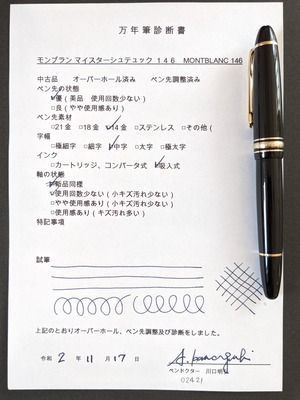 万年筆診断書
モンブラン マイスターシュテュック 146 MONTBLANC 146
中古品 オーバーホール済み ペン先調整済み
ペン先の状態
☑優(美品 使用回数少ない)
□良(やや使用感あり)
ペン先素材
□21金 □18金 ☑14金 □ステンレス □その他(
字幅
□極細字 □細字 ☑中字 □太字 □極太字
インク
□カートリッジ、コンバータ式 ☑吸入式
軸の状態
□新品同様
☑使用回数少ない(小キズ汚れ少ない)
□やや使用感あり(小キズ汚れ少ない)
□使用感あり(キズ汚れ多い)
特記事項
試筆
上記のとおりオーバーホール、ペン先調整及び診断をしました。
令和 2 年 11 月 17 日
ペンドクター 川口明
02421